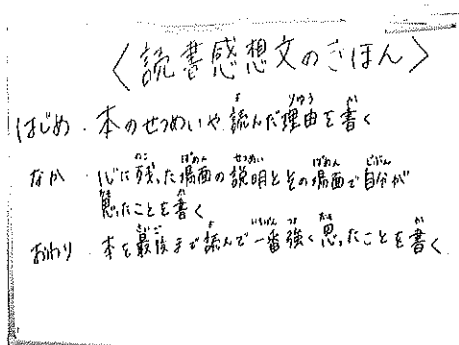 〈読書感想文のきほん〉
はじめ・本のせつめいや読んだ理由を書く
なか・心に残った場面の説明とその場面で自分が
思ったことを書く
おわり・本を最後まで読んで一番強く思ったことを書く